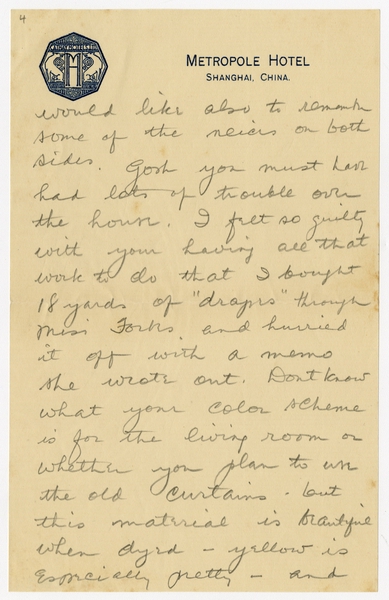 4
CATHAY HOTELS, LTD.
METROPOLE HOTEL
SHANGHAI, CHINA.
would like also to remember
some of the neices on both
sides. Gosh you must have
had lots of trouble over
the house. I felt so guilty
with your having all that
work to do that I bought
18 yards of "drapes" through
Miss Forks and hurried
it off with a memo
she wrote out. Dont know
what your color scheme
is for the living room or
whether you plan to use
the old curtains - but
this material is beautiful
when dyed - yellow is
especially pretty - and